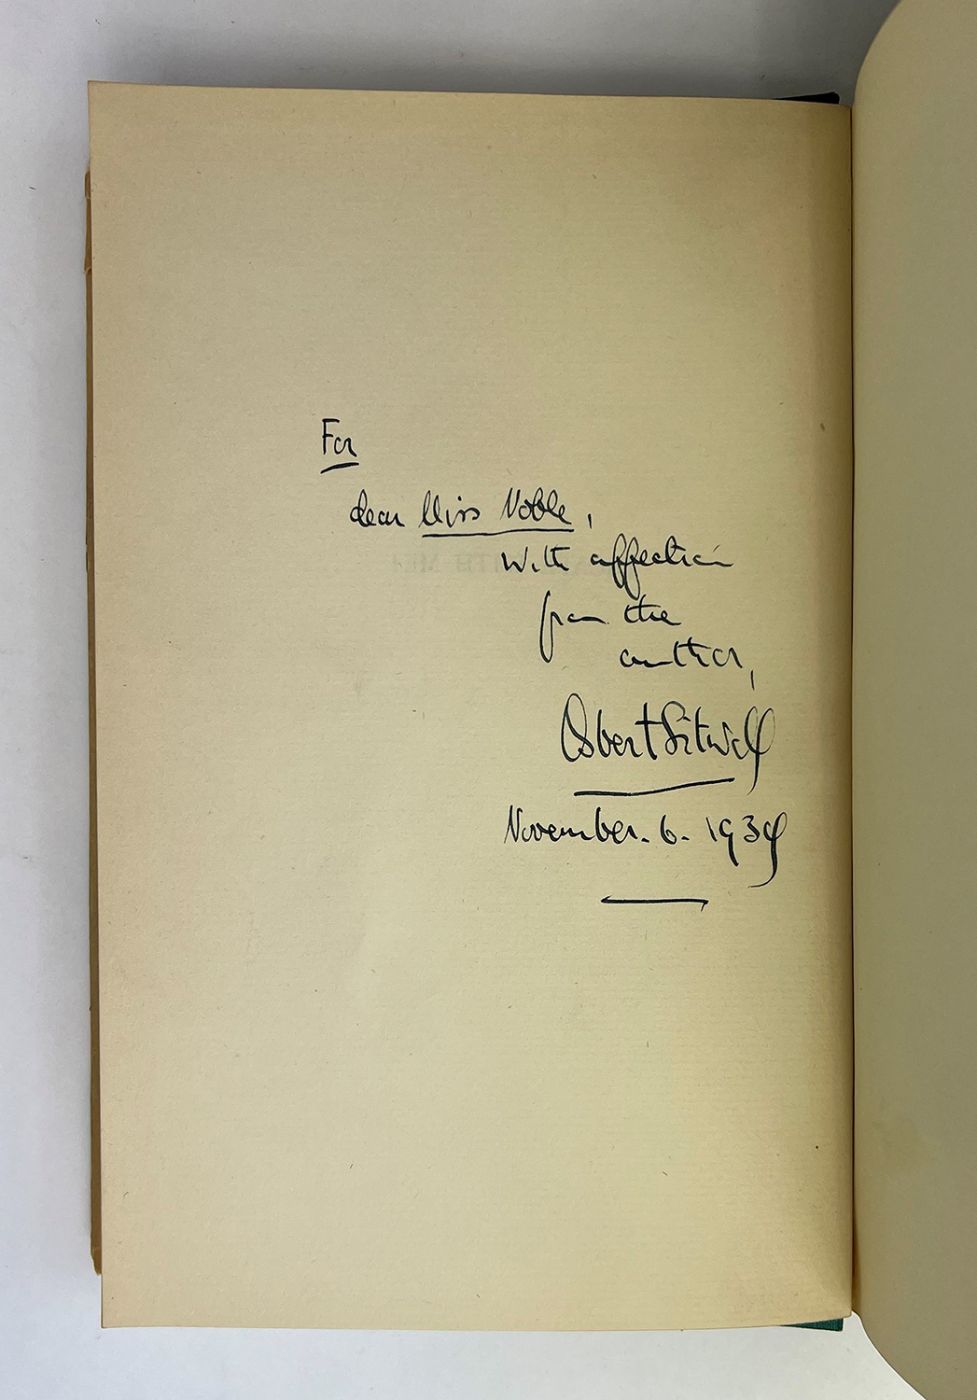 For
dear Miss Noble,
with affection
from the
author,
Osbert Sitwell
November. 6. 1939